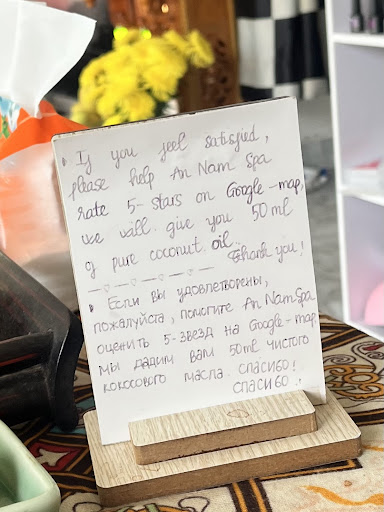 • If you feel satisfied,
please help An Nam Spa
rate 5-stars on Google-map,
we will give you 50ml
of pure coconut oil.
Thank you!
• Если вы удовлетворены,
пожалуйста, помогите An Nam Spa
оценить 5-звезд на Google-map
мы дадим вам 50ml чистого
кокосового масла. Спасибо!
Спасибо.!